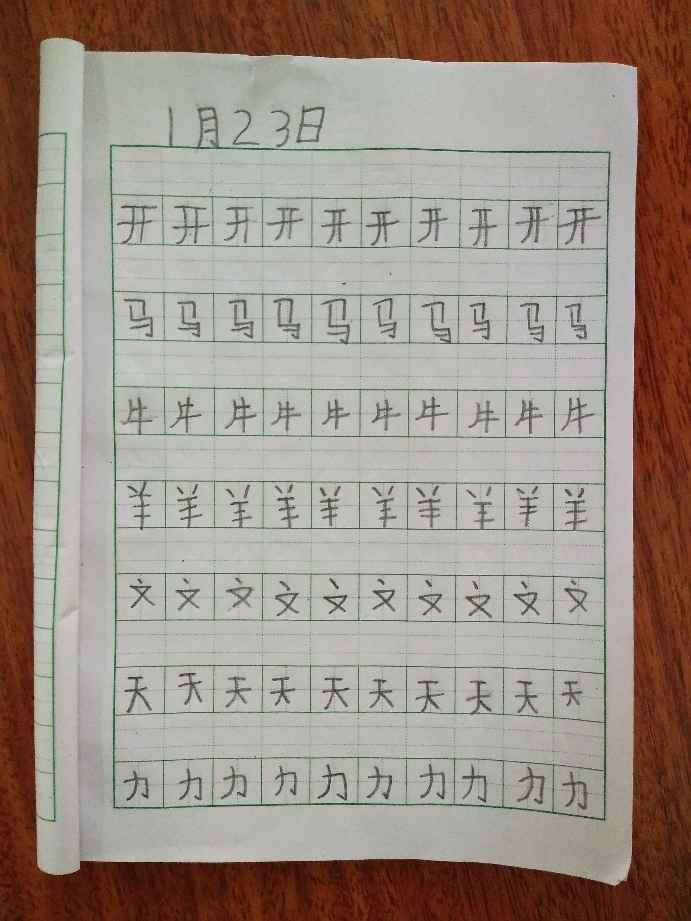 1月23日
开开开开开开开开开开
马马马马马马马马马马
牛牛牛牛牛牛牛牛牛牛
羊羊羊羊羊羊羊羊羊羊
文文文文文文文文文文
天天天天天天天天天天
力力力力力力力力力力